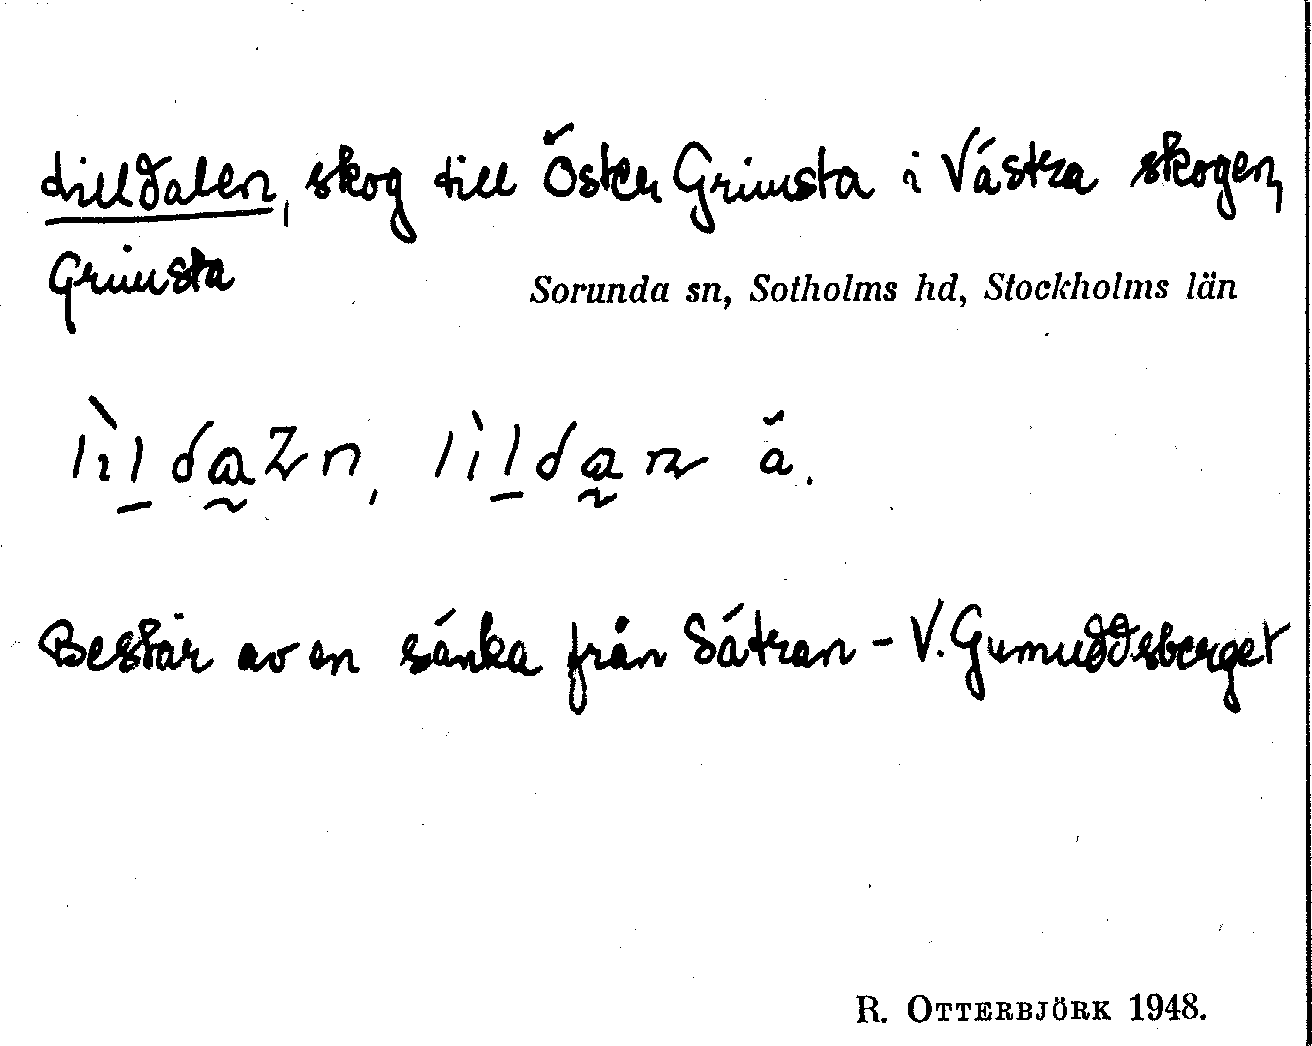 Lilldalen, skog till Öster Grimsta i Västra skogen,
Grimsta
Sorunda sn, Sotholms hd, Stockholms län
Består av en sänka från Sätran - V. Gumuddsberget
R. OTTERBJÖRK 1948.